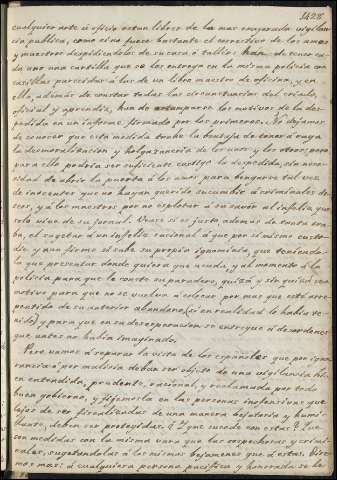 1428
cualquier arte ú oficio estan libres de la mas exagerada vigilan-
cia publica, como si no fuese bastante el correctivo de los amos
y maestros despidiendolos de su casa ó taller: han de tener ca-
da uno una cartilla que se les entrega en la misma policia con
casillas parecidas á las de un libro maestro de oficina, y en
ella, además de constar todas las circunstancias del criado,
oficial y aprendiz, han de estamparse los motivos de la des-
pedida en un informe firmado por los primeros. No dejamos
de conocer que esta medida trahe la bentaja de tener á raya
la desmoralizacion y holgazaneria de los unos y los otros; pero
para ello podria ser suficiente castigo la despedida, sin nece-
sidad de abrir la puerta á los amos para bengarse tal vez
de inocentes que no hayan querido sucumbir á criminales de-
seos, y á los maestros por no esplotar á su sabor al infeliz que
solo vive de su jornal. Vease si es justo, ademas de tanta tra-
ba, el sugetar á un infeliz racional á que por sí mismo custo-
die y aun firme si sabe su propia ignominia, que teniendo-
la que presentar donde quiera que acuda, y al momento á la
policia para que le conste su paradero, quizá y sin quizá sea
motivo para que no se vuelva á colocar por mas que esté arre-
pentido de su anterior abandono, (si en realidad lo habia te-
nido) y para que en su desesperacion se entregue á desordenes
que antes no habia imaginado.
Pero vamos á reparar la vista de los españoles que por igno-
rancia ó por malicia deban ser objeto de una vigilancia bi-
en entendida, prudente, racional, y reclamada por todo
buen gobierno, y fijemosla en las personas inofensivas que
lejos de ser fiscalizadas de una manera bejatoria y humi-
llante, deben ser protegidas. ¿Y que sucede con estas? Que
son medidas con la misma vara que las sospechosas y crimi-
nales, sugetandolas á los mismos bejamenes que á estas. Dire-
mos mas: á cualquiera persona pacifica y honrada se le